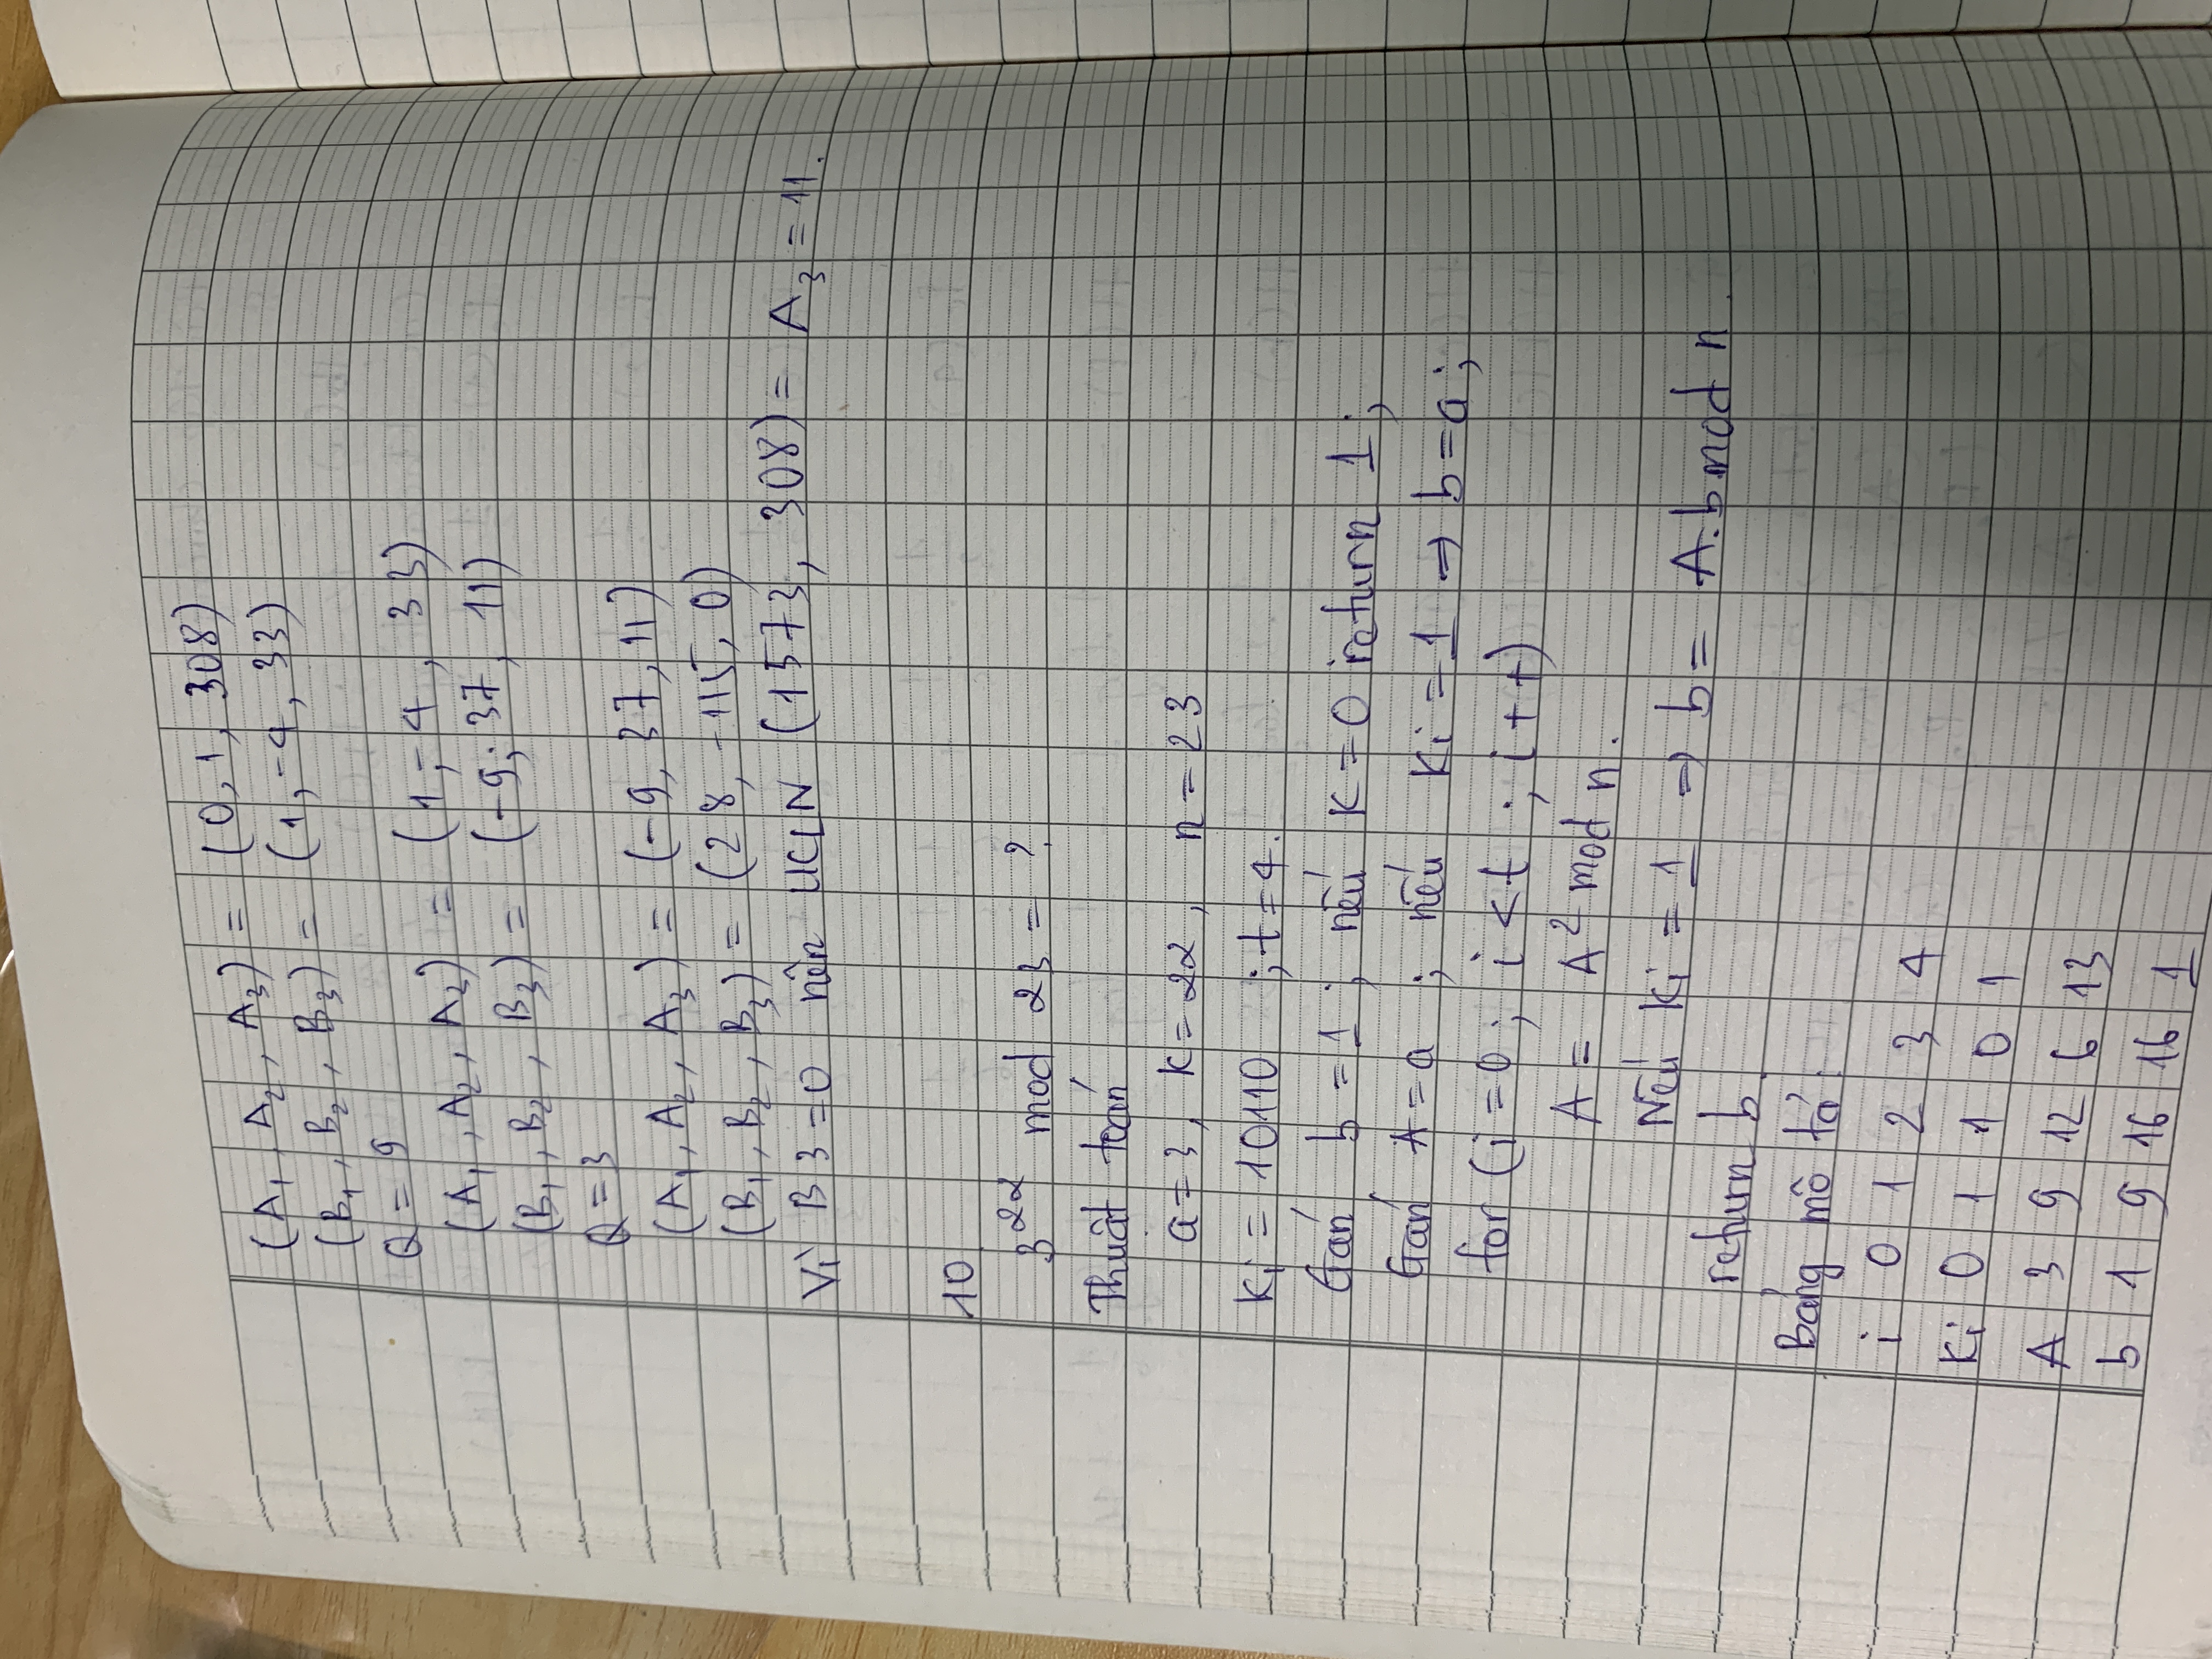 (A₁, A₂, A₃) = (0, 1, 308)
(B₁, B₂, B₃) = (1, -4, 33)
Q = 9
(A₁, A₂, A₃) = (1, -4, 33)
(B₁, B₂, B₃) = (-9; 37, 11)
Q = 3
(A₁, A₂, A₃) = (-9, 37, 11)
(B₁, B₂, B₃) = (28, -115, 0)
Vì B3 = 0 nên UCLN (1573, 308) = A₃ = 11.
10
3²² mod 23 = ?
Thuật toán
a = 3, k = 22, n = 23
Ki = 10110 ; t = 4.
Gán b = 1 ; nếu K = 0 return 1 ;
Gán A = a ; nếu Ki = 1 ⇒ b = a ;
for (i = 0 ; i < t ; i++)
A = A² mod n.
Nếu ki = 1 ⇒ b = A.b mod n.
return b.
Bảng mô tả :
i 0 1 2 3 4
Ki 0 1 1 0 1
A 3 9 12 6 13
b 1 9 16 16 1